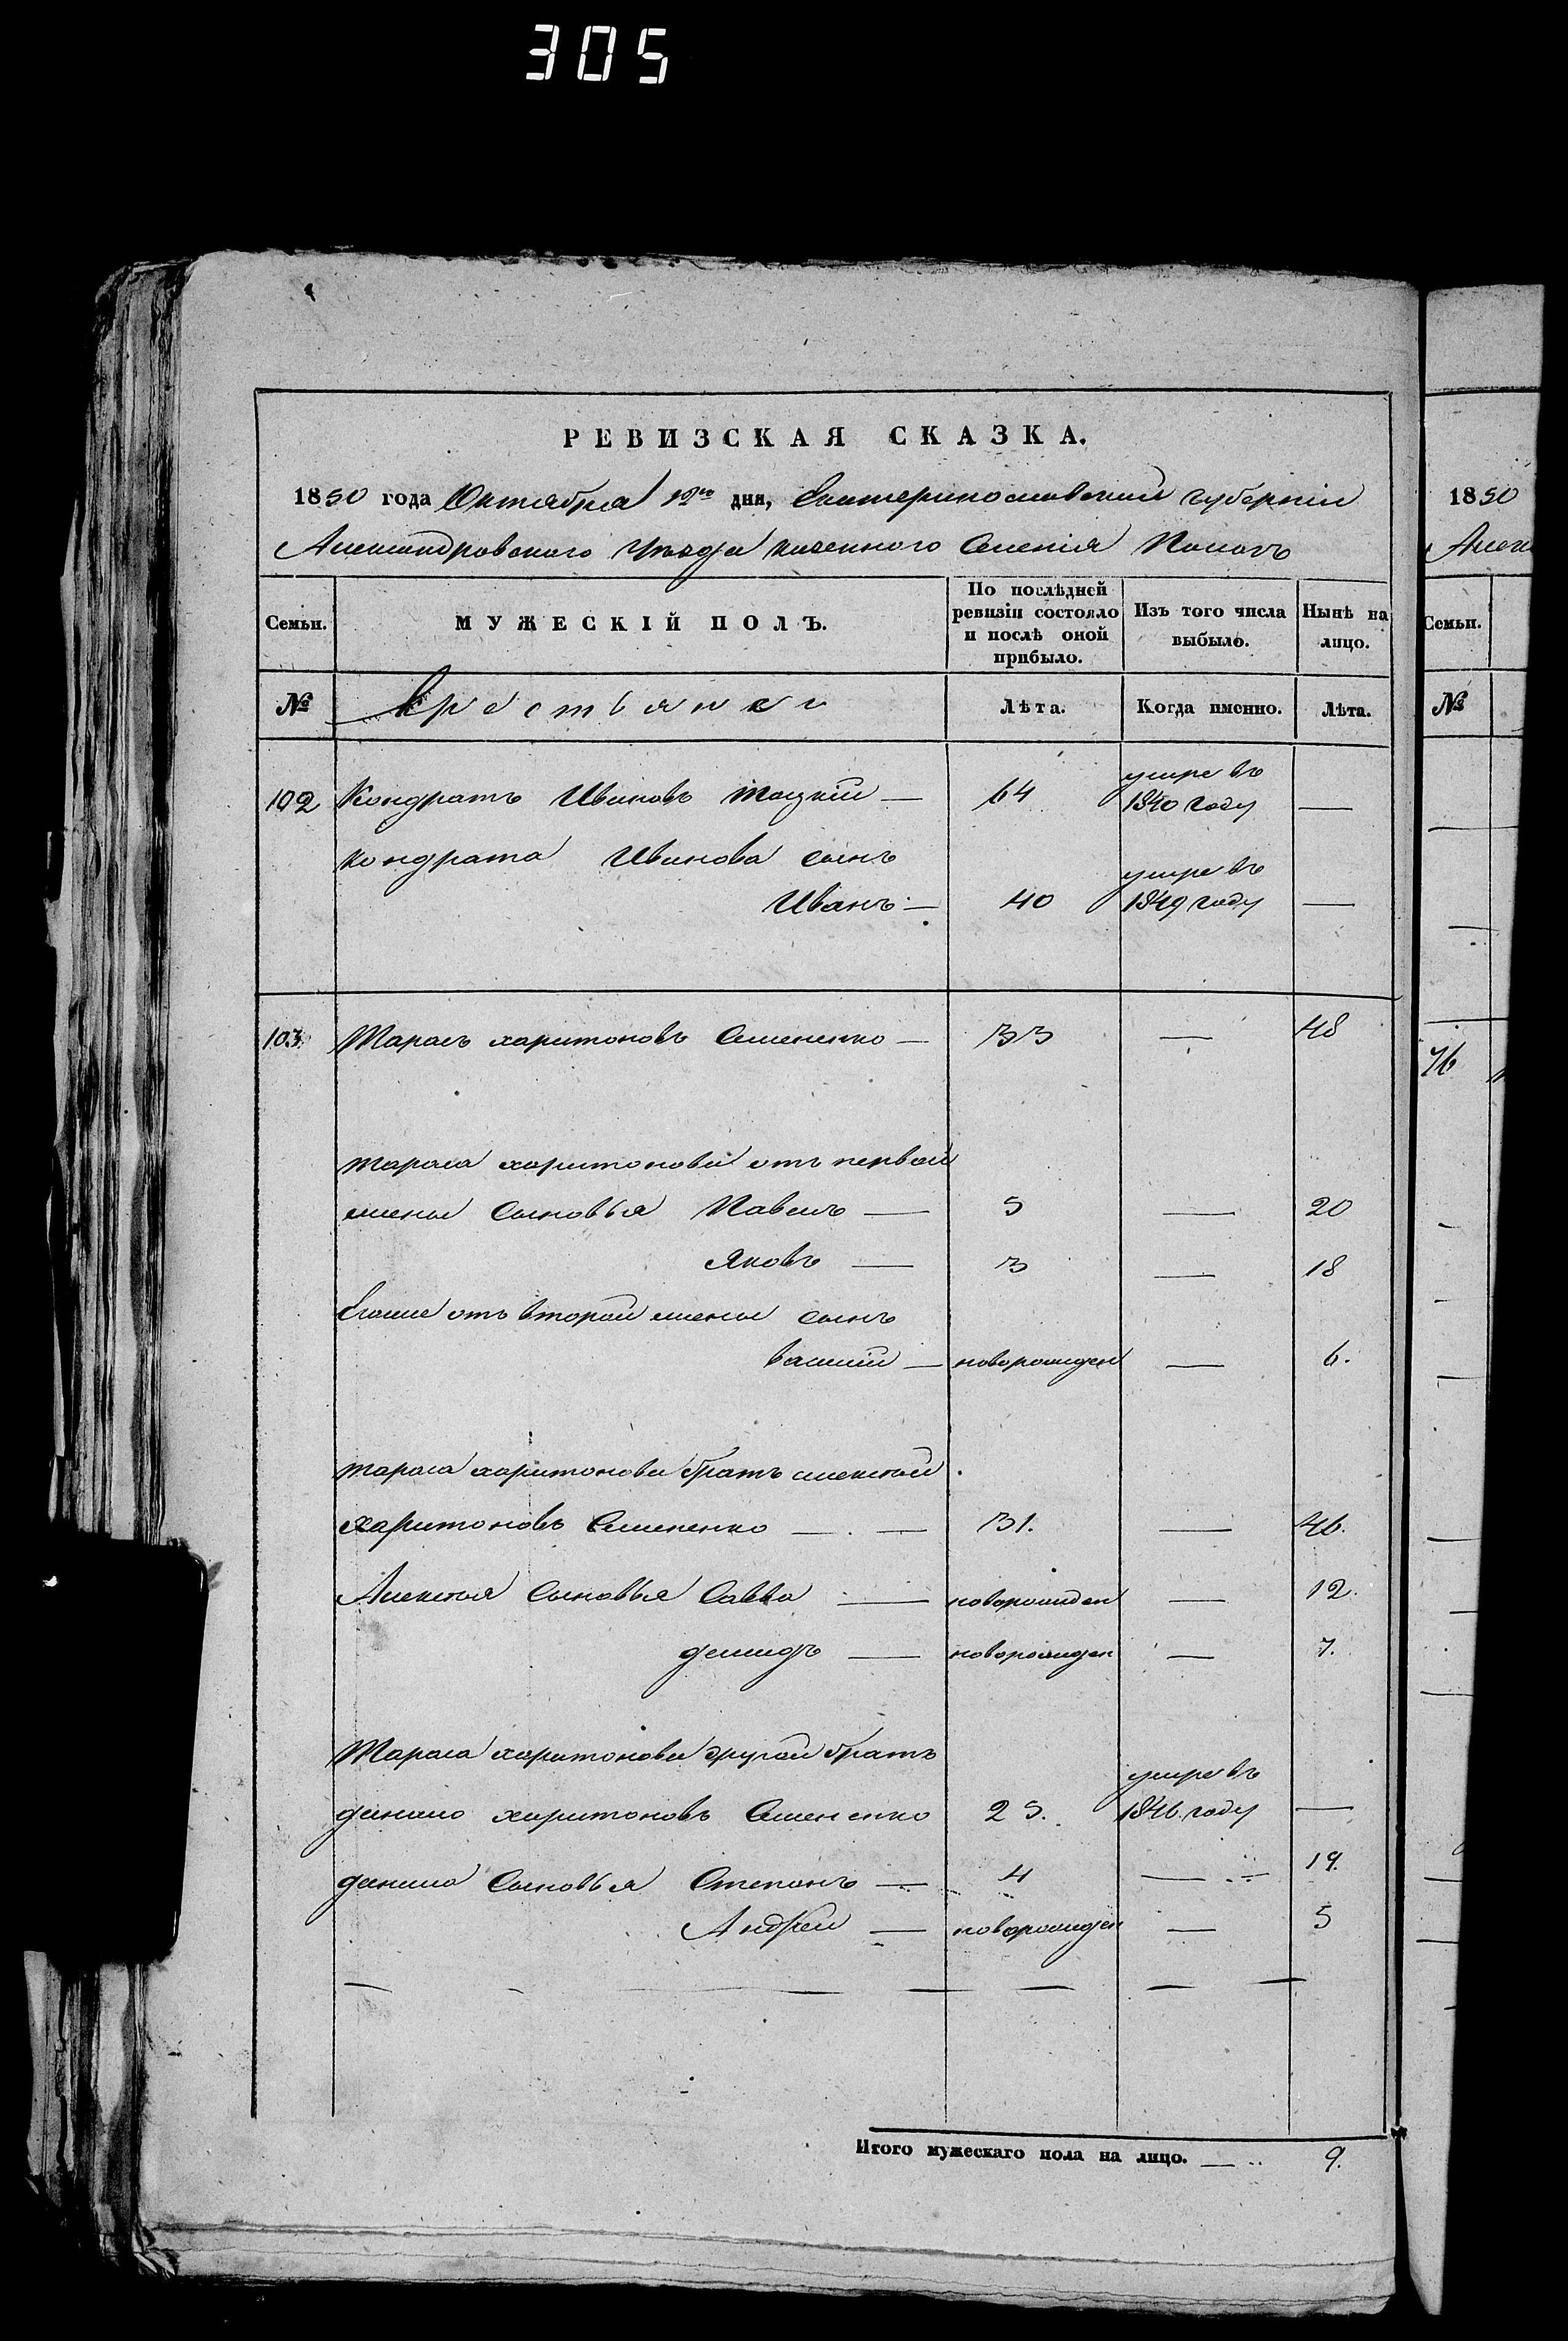 305
РЕВИЗСКАЯ СКАЗКА.
1850 года Октября дня, Екатеринославской губерніи
Александровскаго уѣзда казеннаго Селенія Пологъ
Семьи.
МУЖЕСКІЙ ПОЛЪ.
По послѣдней ревизіи состояло и послѣ оной прибыло.
Изъ того числа выбыло.
Нынѣ на лицо.
№
Крестьянки
Лѣта.
Когда именно.
Лѣта.
102 Кондратъ Ивановъ Тоцкій — 64 умре въ 1840 году —
Кондрата Иванова сынъ
Иванъ — 40 умре въ 1849 году —
103 Тарасъ Харитоновъ Семененко — 33 — 48
Тараса Харитонова отъ первой
жены Сыновья Павелъ — 5 — 20
Яковъ — 3 — 18
Егоже отъ второй жены сынъ
Василій — новорожден — 6.
Тараса Харитонова братъ Алексѣй
Харитоновъ Семененко — — 31. — 46.
Алексѣя Сыновья Савва — новорожден — 12.
Демидъ — новорожден — 7.
Тараса Харитонова другой братъ
Данило Харитоновъ Семененко 25. умре въ 1846. году —
Данила Сыновья Степанъ — 4 — 19.
Андрей — новорожден — 5
Итого мужескаго пола на лицо. — 9.
1850
Алек
Семьи.
№
76